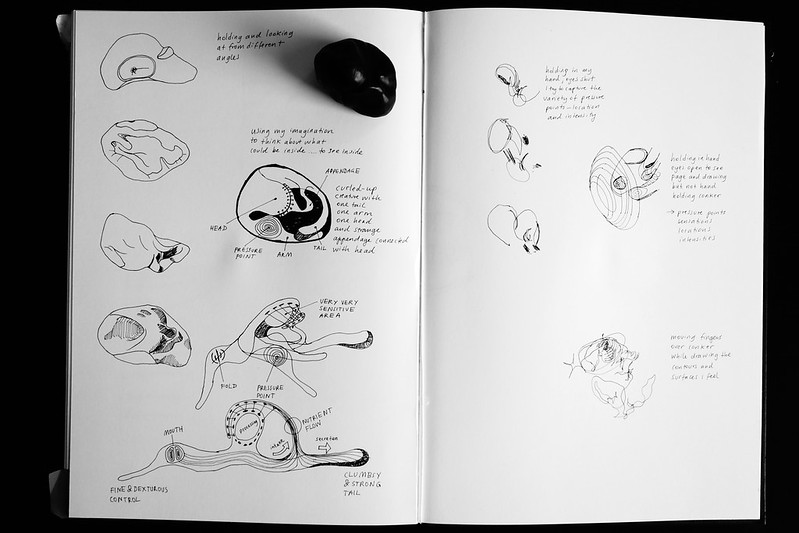 holding and looking
at from different
angles
Using my imagination
to think about what
could be inside .... to see inside
APPENDAGE
curled-up
creature with
one tail
one arm
one head
and strange
appendage connected
with head
HEAD
PRESSURE
POINT
ARM
TAIL
VERY VERY
SENSITIVE
AREA
FOLD
PRESSURE
POINT
MOUTH
NUTRIENT
FLOW
intake
secretion
FINE & DEXTUROUS
CONTROL
CLUMBSY
& STRONG
TAIL
holding in my
hand, eyes shut
I try to capture the
variety of pressure
points - location
and intensity
holding in hand
eyes open to see
page and drawing
but not hand
holding conker
→ pressure points
sensations
locations
intensities
moving fingers
over conker
while drawing the
contours and
surfaces i feel